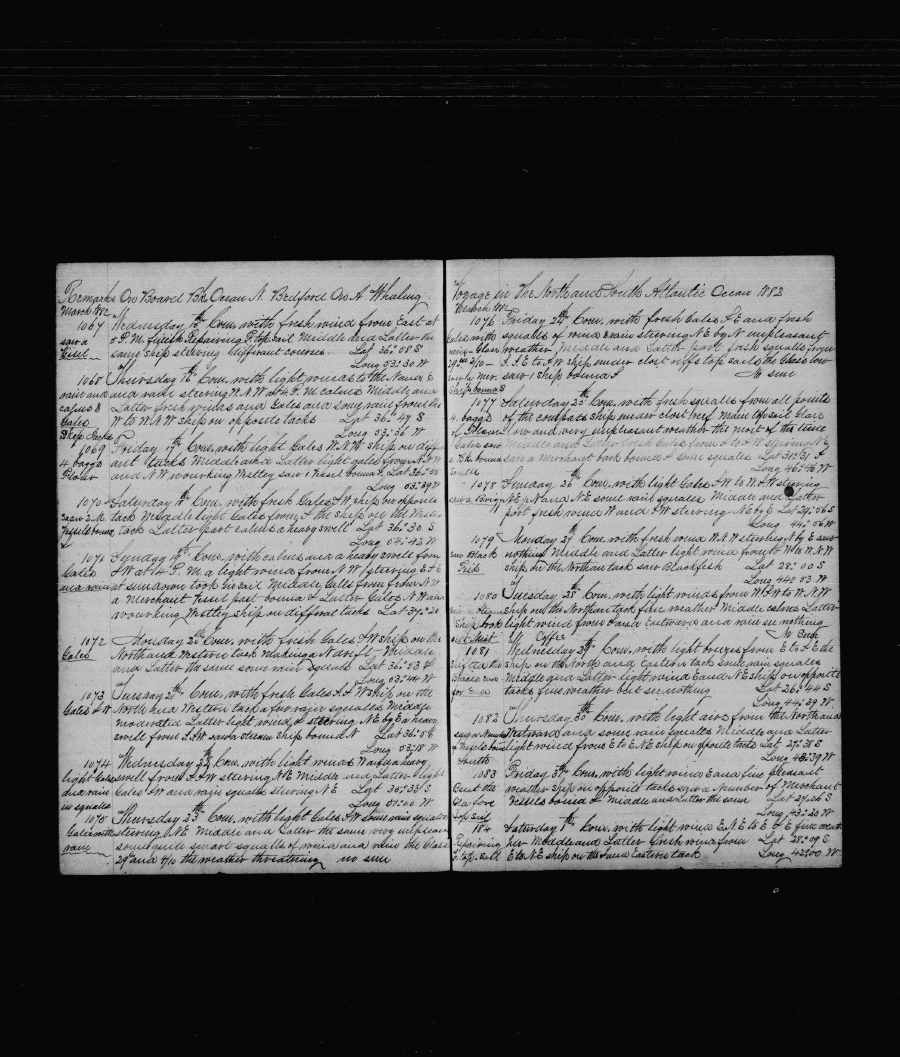 Remarks On Board Bk Ocean N. Bedford On A Whaling
March 1882
1067 Wednesday 15th Com. with fresh wind from East at
saw a 5 P.M. finish Repairing F. top Sail Middle and Latter the
Vessel same ship steering different courses Lat 36..08 S
Long 03..30 W
1068 Thursday 16th Com. with light winds to the N and E
rain and and rain steering W.N.W at 4 P.M. calms Middle and
calms & Latter fresh winds and Gales and some rain from the
Gales W to N.N.W ship on opposite tacks Lat 36..49 S
Long 03..36 W
1069 Friday 17th Com. with light Gales W.N.W. ship on diff
4 baggs ant tacks Middle and Latter light gales from N.N.W
Flour and N.W wourking Westley saw 1 vessel bound Lat 36..
Long 03..39 W
1070 Saturday 18th Com. with fresh Gales S.W ship on opposite
tack Middle light Gales from S the ship on the West
tack Latter part calms a heavy swell Lat 36..30 S
Long 04..43 W
1071 Sunday 19th Com. with calms and a heavy swell from
Gales S.W at 4 P.M. a light wind from N.W steering
and rain at sundown took in sail Middle Gales from from N.W
a Merchant Vessel past bound S Latter Gales N.W and
wourking Westley ship on differant tacks Lat 37..20
1072 Monday 20th Com. with fresh Gales S.W ship on the
Gales North and Western tack making N drift Middle
and Latter the same some rain squals Lat 36..03 S
Long 03..44 W
1073 Tuesday 21st Com. with fresh Gales S.S.W ship on the
Gales S.W North and Western tack a few rain squals Middle
moderated Latter light wind, & steering N.E by E a heavy
swell from S.S.W saw a steam ship bound N Lat 36..06
Long 03..18 W
1074 Wednesday 22d Com. with light winds W and a heavy
light Gales swell from S.S.W steering N.E Middle and Latter light
and rain Gales S.W and rain squals steering N.E Lat 30..33 S
in squals Long 01..00 W
1075 Thursday 23d Com. with light Gales S.W some rain squals
Gales with steering N.E Middle and Latter the same very unpleasant
rain some quite smart squalls of wind and rain the Glass
29 and 4/10 the weather threatning no sun
Voyage in the North and South Atlantic Ocean 1882
March 1882
1076 Friday 24th Com. with fresh Gales S.E and fresh
Gales with squals of wind & rain steering N.E by N unpleasant
rain Glass weather Middle and Latter part fresh squals from
S.S.E to S.W ship under close riffs top sails the Glass low
saw 1 ship bound S No sun
Ship bound S
1077 Saturday 25th Com. with fresh squals from all points
4 baggs of the compass ship under close reef Main top sail Glass
low and very unpleasant weather the most of the time
Middle and Latter fresh Gales from S to S.W steering N.E
saw a Merchant bark bound S some squals Lat 31..31 S
Long 46..46 W
1078 Sunday 26th Com. with light Gales S.W to W. steering
N.E by N and N.E some rain squals Middle and Latter
part fresh wind W and S.W steering N.E by E Lat 29..06 S
Long 44..06 W
1079 Monday 27th Com. with fresh wind W.N.W steering N by E saw
saw Black nothing Middle and Latter light wind from N to W.N.W
Fish ship on the Northan tack saw Blackfish Lat 28..00 S
Long 44..53 W
1080 Tuesday 28th Com. with light winds from W.S.W to W.N.W
ship on the Northan tack fine weather Middle calms Latter
light wind from S and Eastward and rain see nothing
No Obs
1081 Wednesday 29th Com. with light breezes from E to S.E the
ship on the North and Eastern tack some rain squals
Middle and Latter light wind E and N.E ship on opposite
tacks fine weather but see nothing Lat 26..44 S
Long 44..39 W
1082 Thursday 30th Com. with light airs from the North and
Westward and some rain squals Middle and Latter
light wind from E to E.N.E ship on opposite tacks Lat 27..38 S
South Long 43..39 W
1083 Friday 31st Com. with light wind E and fine pleasant
Bent the weather ship on opposite tacks saw a Number of Merchant
Vessels bound S Middle and Latter the same Lat 27..26 S
top sail Long 43..20 W
184 Saturday 1st Com. with light wind E.N.E to E & E fine weath
Repairing her Middle and Latter fresh wind from Lat 28..09 S
F. top. Sail E to N.E ship on the S and Eastern tack Long 42..00 W